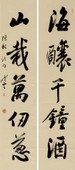 海釀千鍾酒
山栽萬仞葱